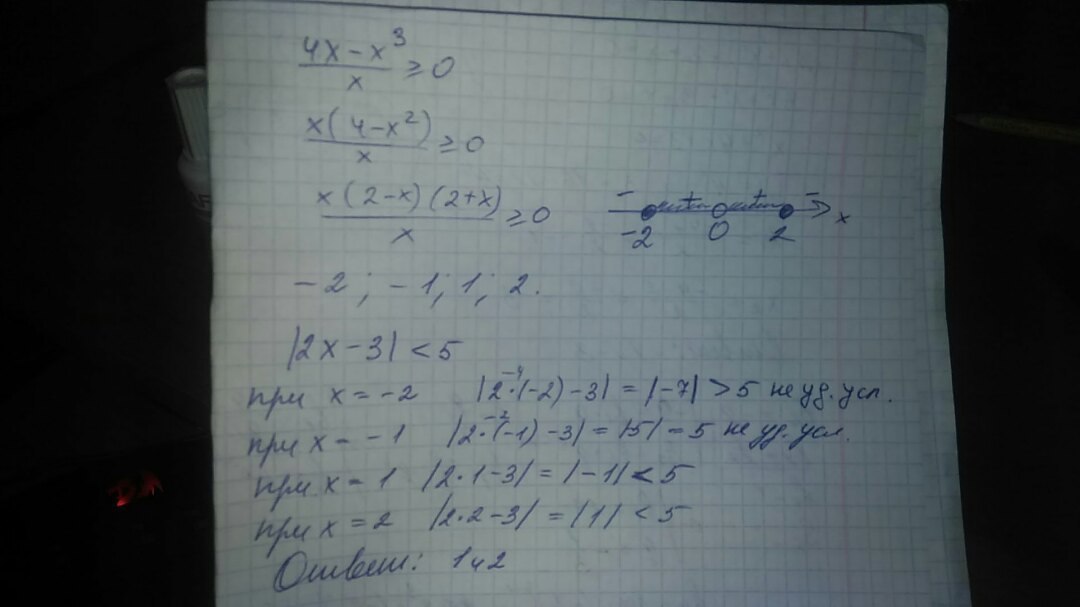 (4x - x³)/x ≥ 0
x(4 - x²)/x ≥ 0
x(2-x)(2+x)/x ≥ 0
- + + -
-2 0 2 x
-2; -1; 1; 2.
|2x-3| < 5
при x = -2 |2·(-2)-3| = |-7| > 5 не уд. усл.
-4
при x = -1 |2·(-1)-3| = |-5| = 5 не уд. усл.
-2
при x = 1 |2·1-3| = |-1| < 5
при x = 2 |2·2-3| = |1| < 5
Ответ: 1 и 2